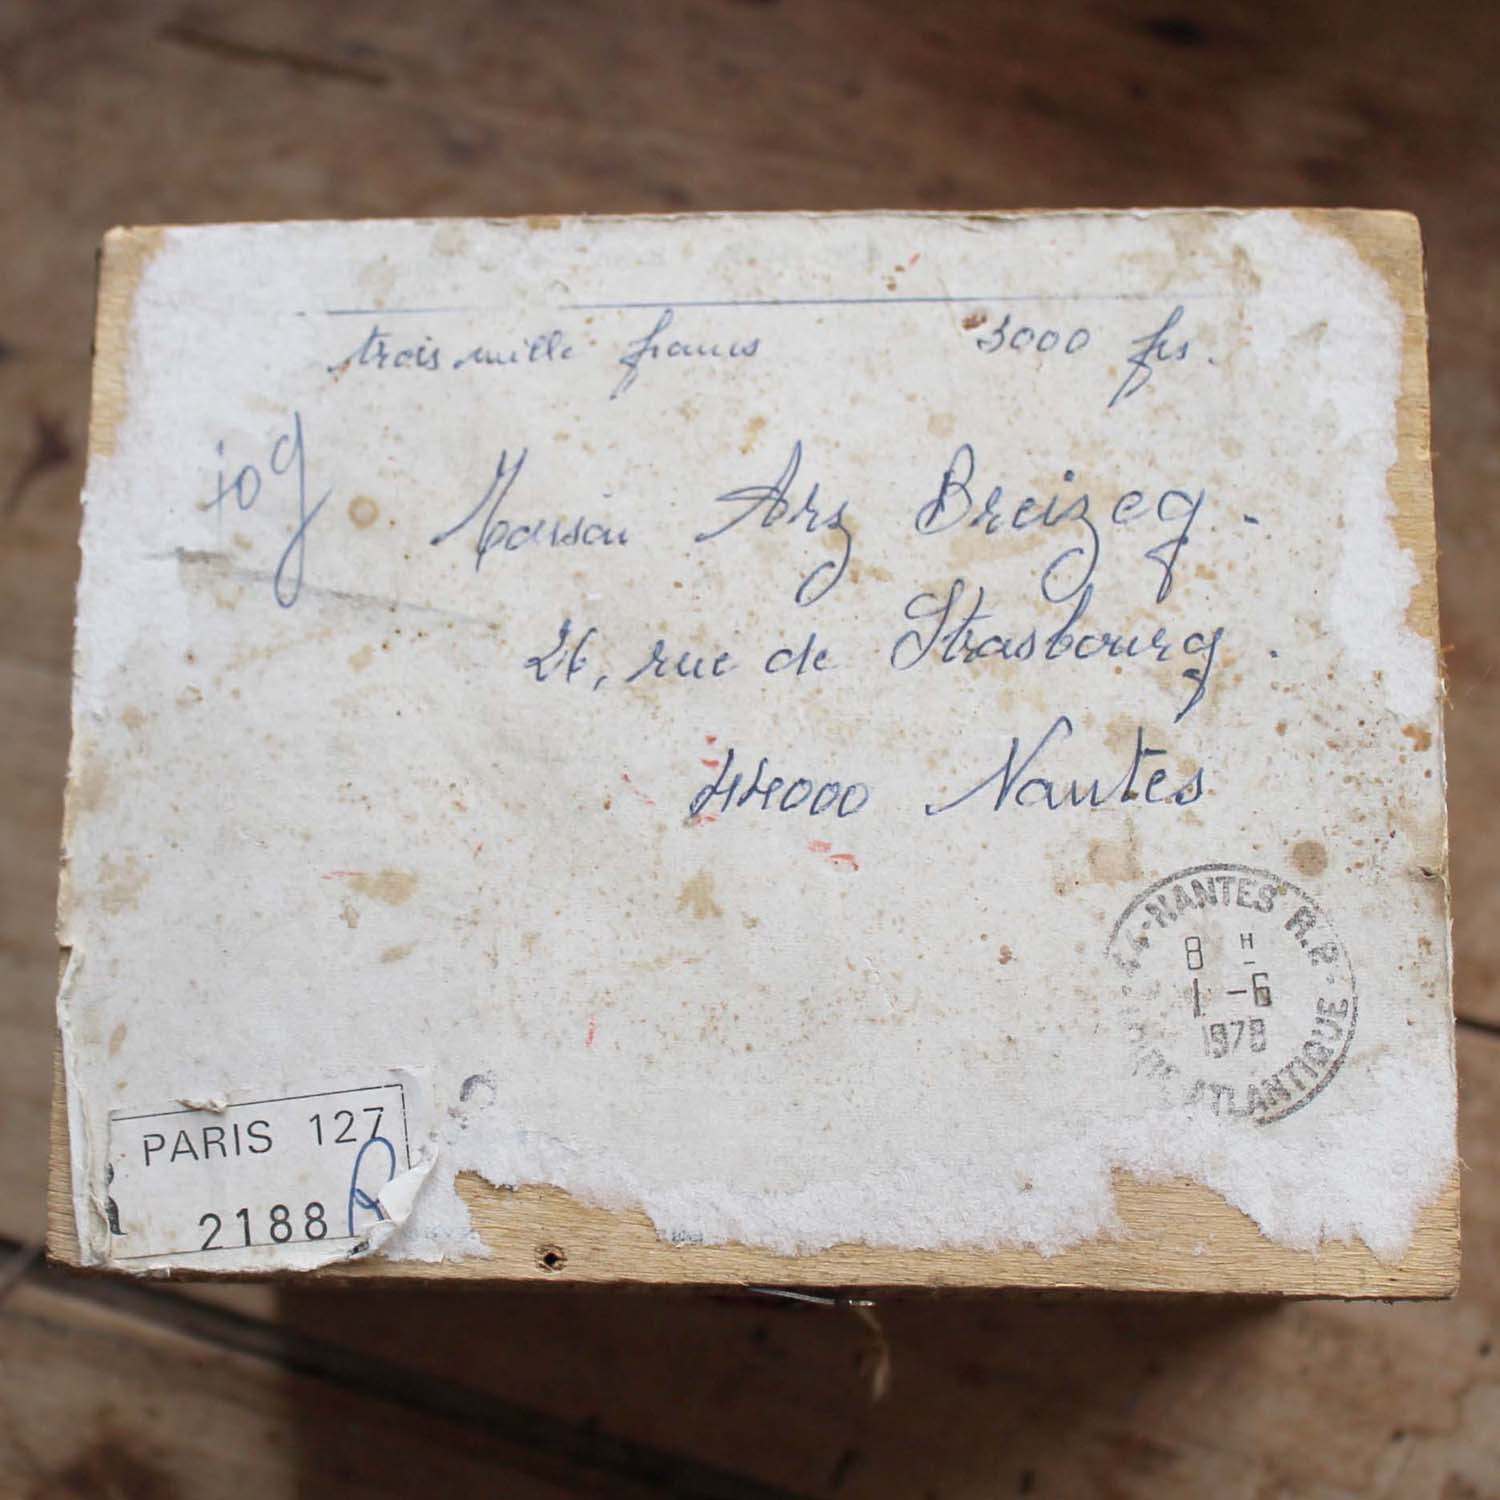 trois mille francs 3000 frs.
Maison Arz Breizeg.
26, rue de Strasbourg.
44000 Nantes
44-NANTES R.P.
8 H
1 -6
1978
ATLANTIQUE
PARIS 127
2188